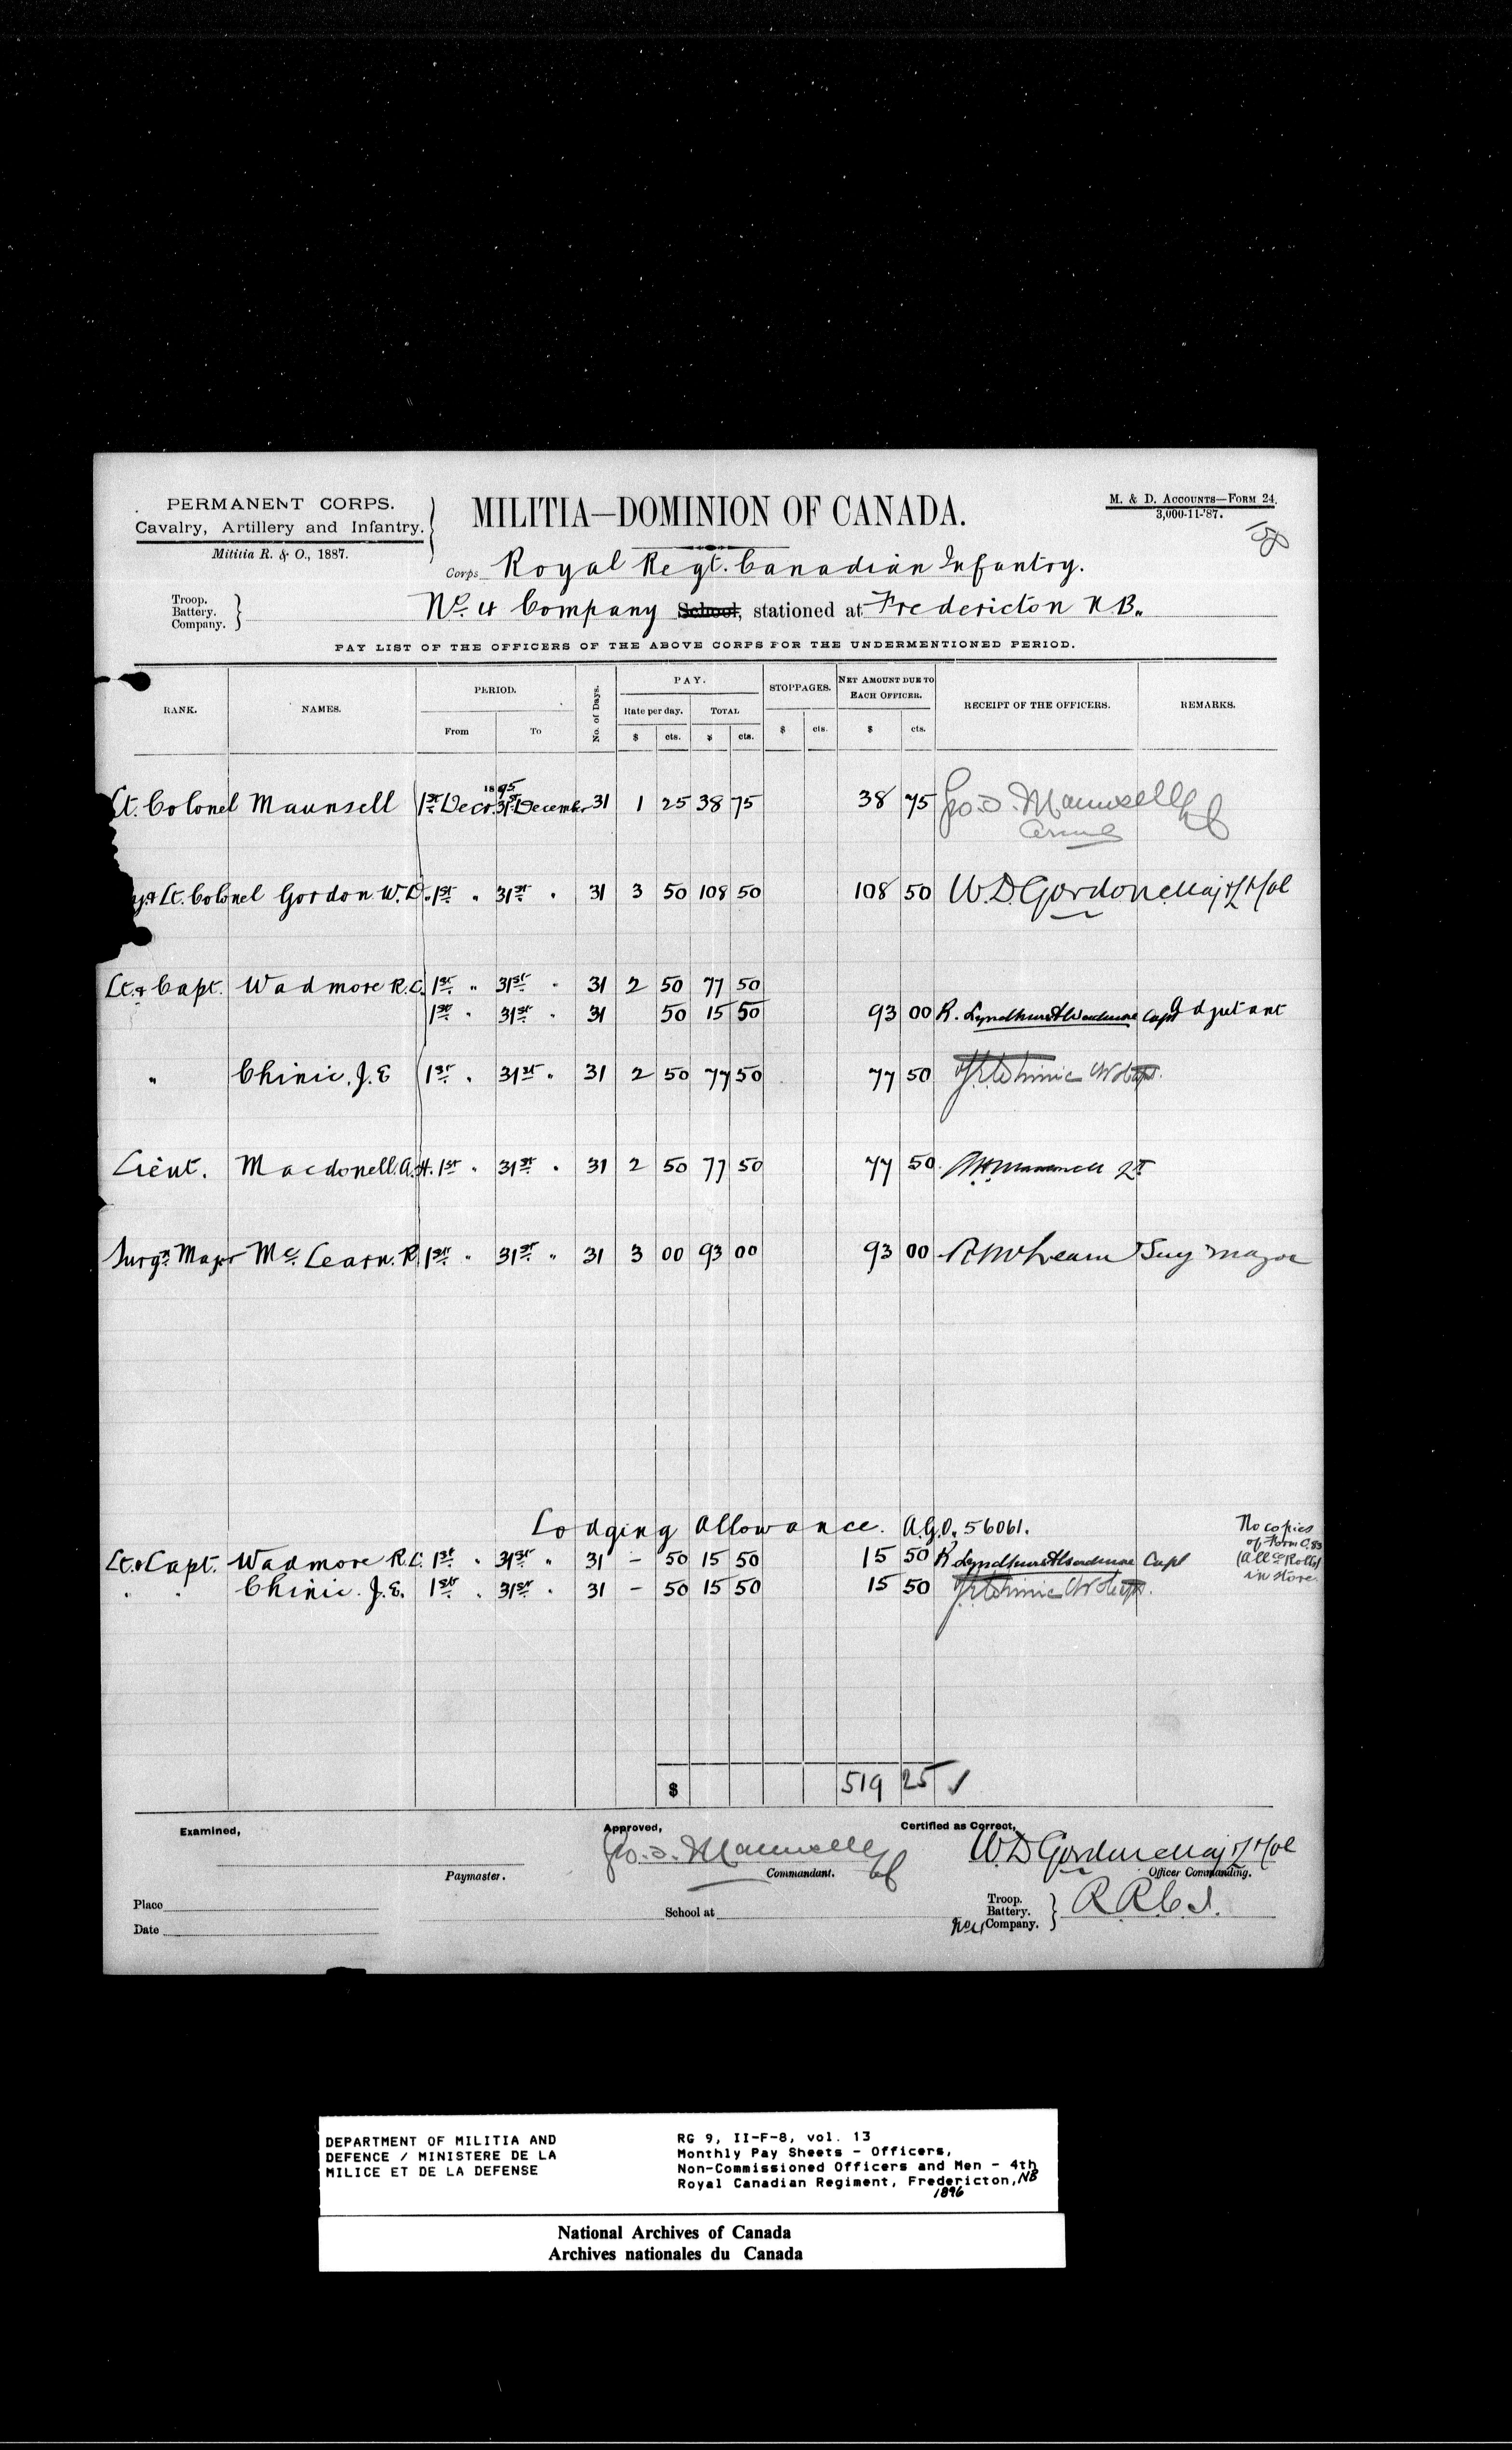 PERMANENT CORPS.
Cavalry, Artillery and Infantry.
Militia R. & O., 1887.
MILITIA—DOMINION OF CANADA.
M. & D. Accounts—Form 24.
3,000-11-'87.
Corps Royal Regt. Canadian Infantry.
Troop.
Battery.
Company.
No. 4 Company School, stationed at Fredericton N.B.
PAY LIST OF THE OFFICERS OF THE ABOVE CORPS FOR THE UNDERMENTIONED PERIOD.
RANK. NAMES. PERIOD. From To No. of Days. PAY. Rate per day. $ cts. TOTAL $ cts. STOPPAGES. $ cts. NET AMOUNT DUE TO EACH OFFICER. $ cts. RECEIPT OF THE OFFICERS. REMARKS.
1895
Lt. Colonel Maunsell 1st Decr. 31st December 31 1 25 38 75 38 75 Geo. J. Maunsell
Lt. Colonel Gordon W.D. 1st " 31st " 31 3 50 108 50 108 50 W.D. Gordon Maj & Lt Col
Lt. & Capt. Wadmore R.L. 1st " 31st " 31 2 50 77 50
1st " 31st " 31 50 15 50 93 00 R. Lyndhurst Wadmore Capt Adjutant
" Chinic. J.E 1st " 31st " 31 2 50 77 50 77 50
Lieut. Macdonell. A.H. 1st " 31st " 31 2 50 77 50 77 50
Surgn. Major McLearn. R 1st " 31st " 31 3 00 93 00 93 00 R McLearn Surg Major
Lodging Allowance. A.G.O. 56061.
Lt. & Capt. Wadmore R.L. 1st " 31st " 31 - 50 15 50 15 50 R Lyndhurst Wadmore Capt
" " Chinic. J.E. 1st " 31st " 31 - 50 15 50 15 50
No copies
of Form C.83
(Allce Rolls)
in store.
$ 519 25
Examined,
Approved,
Certified as Correct,
Geo. J. Maunsell
W D Gordon Maj & Lt Col
Paymaster.
Commandant.
Officer Commanding.
Place
School at
Troop.
Battery.
No 4 Company.
R.R.C.I.
Date
DEPARTMENT OF MILITIA AND
DEFENCE / MINISTERE DE LA
MILICE ET DE LA DEFENSE
RG 9, II-F-8, vol. 13
Monthly Pay Sheets - Officers,
Non-Commissioned Officers and Men - 4th
Royal Canadian Regiment, Fredericton, NB
1896
National Archives of Canada
Archives nationales du Canada